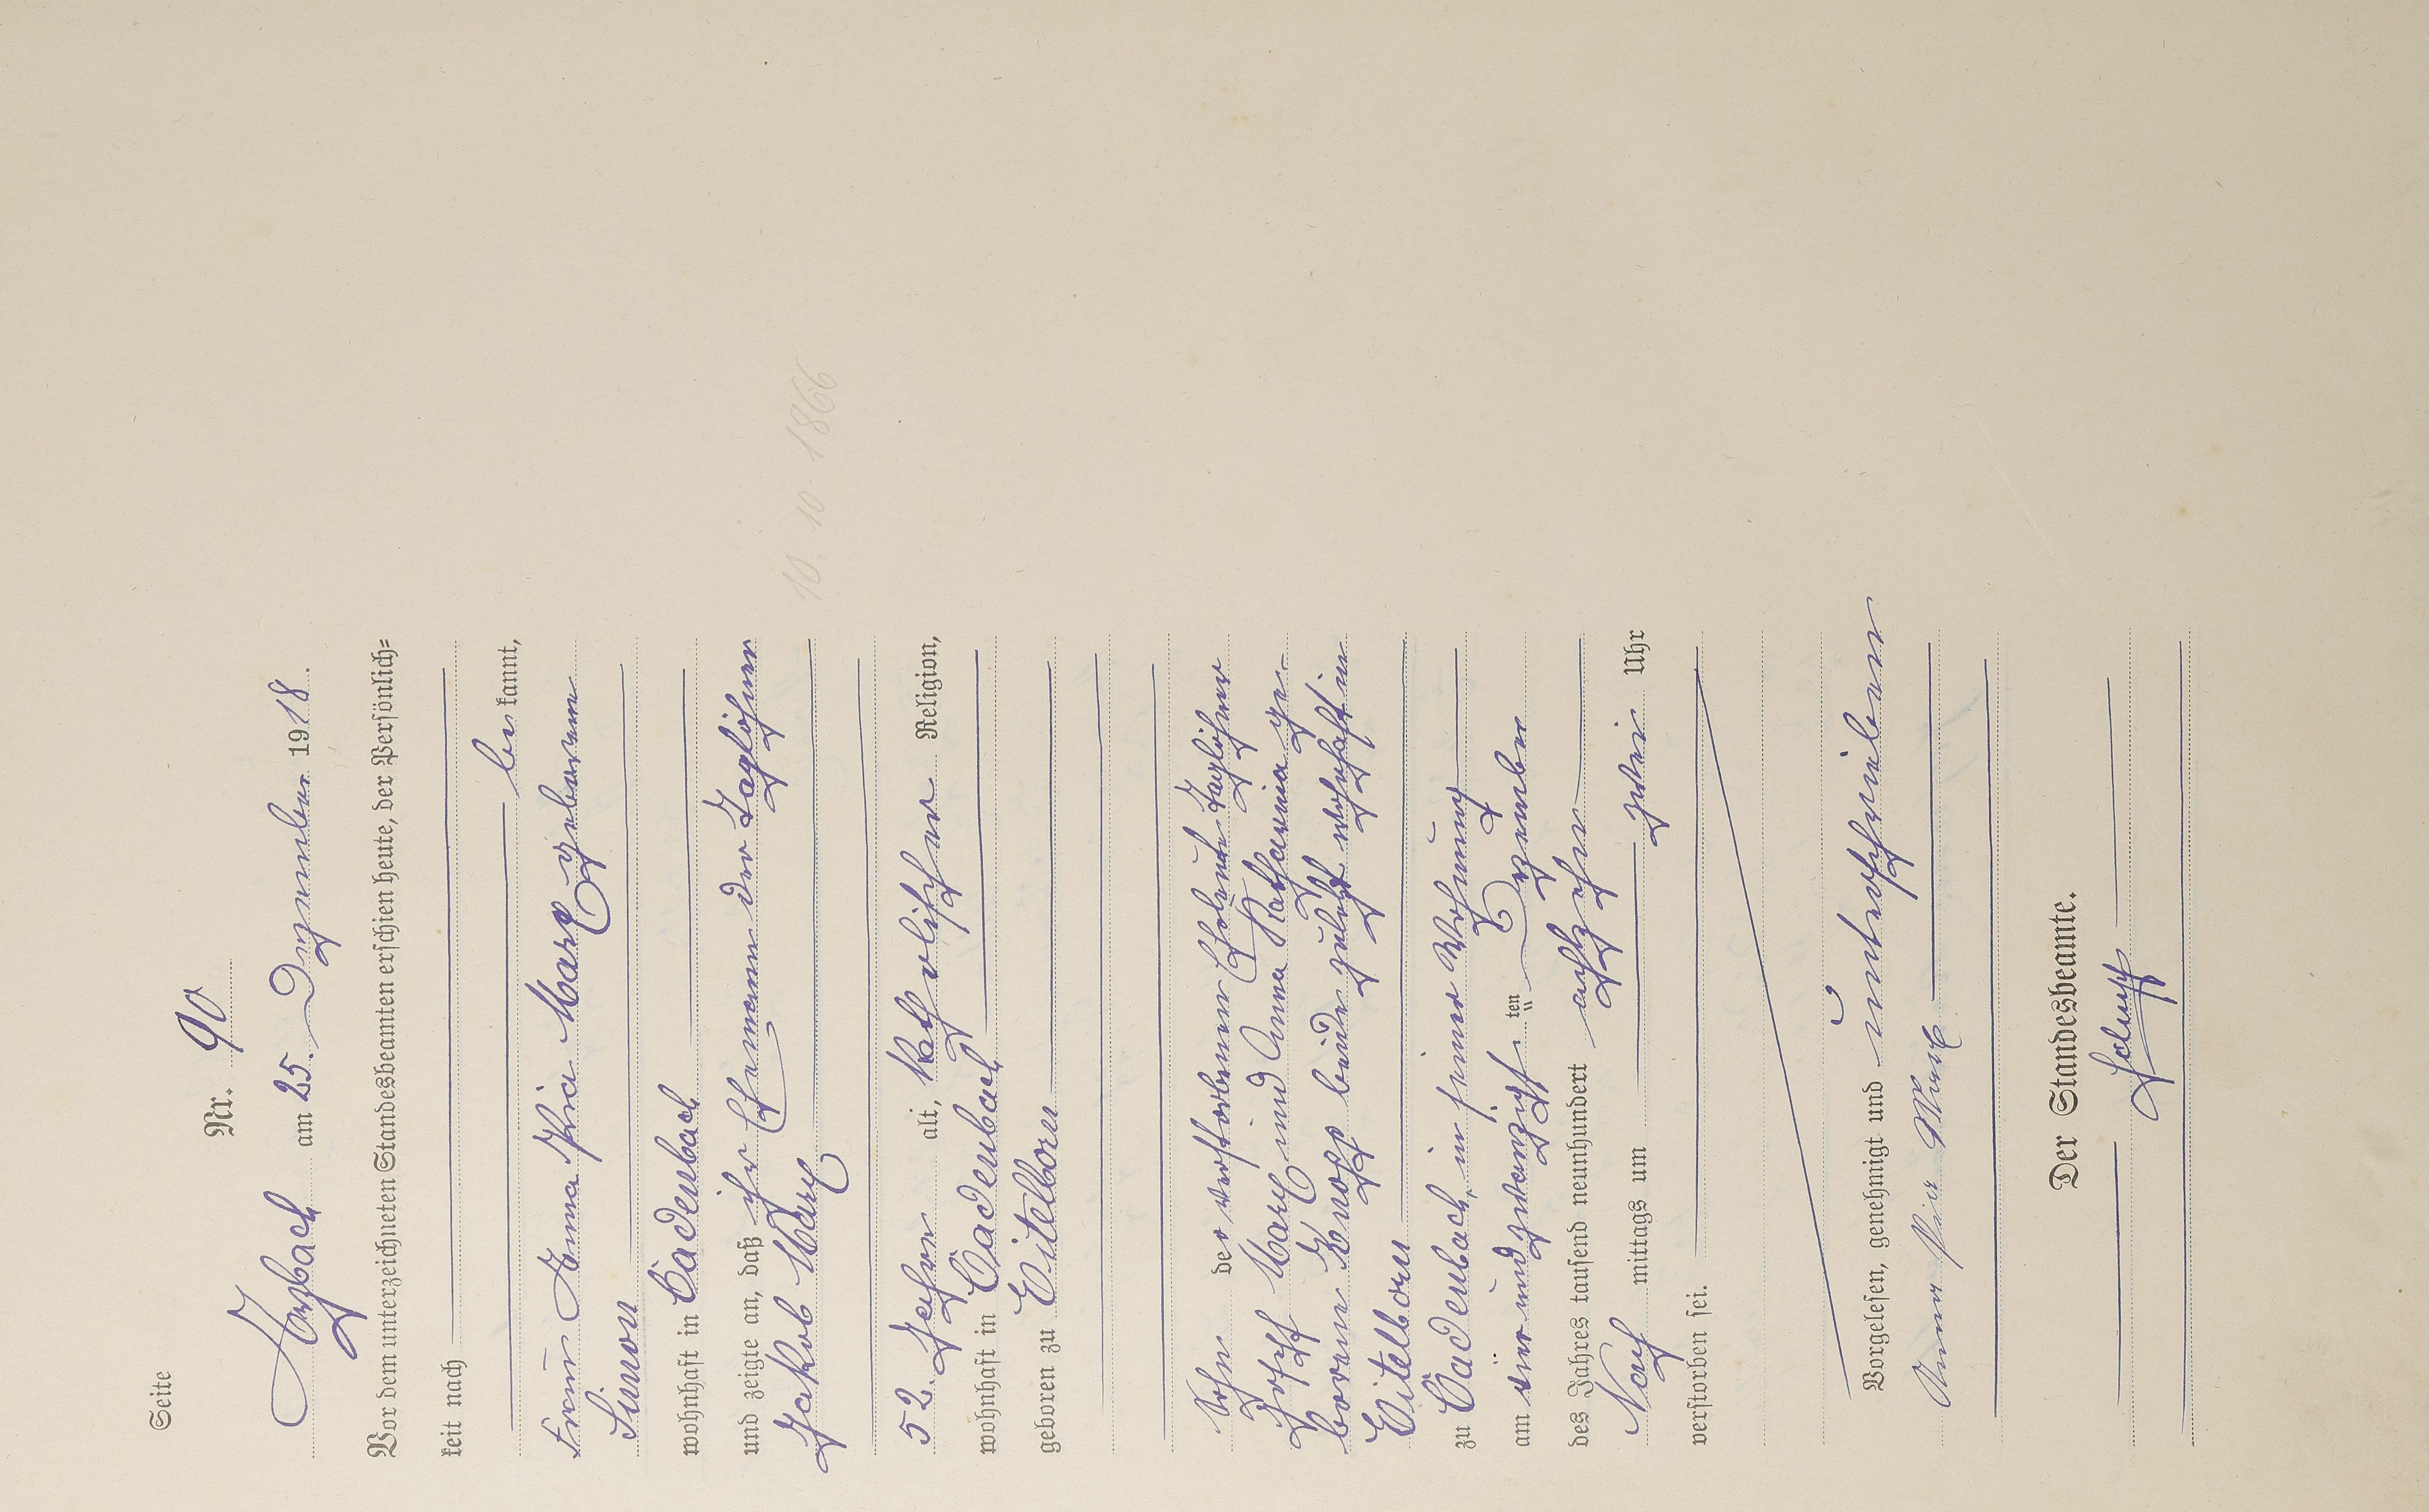 Seite
Nr. 90
Arzbach am 25. Dezember 1918.
Vor dem unterzeichneten Standesbeamten erschien heute, der Persönlich=
keit nach
be kannt,
Frau Anna Pia Marx geborene
Simon
wohnhaft in Cadenbach
und zeigte an, daß ihr Ehemann der Taglöhner
Jakob Marx
10. 10. 1866
52 Jahre alt, katholischer Religion,
wohnhaft in Cadenbach
geboren zu Eitelborn
Sohn der verstorbenen Eheleute Taglöhner
Josef Marx und Anna Katharina ge-
borene Knopp beide zuletzt wohnhaft in
Eitelborn
zu Cadenbach, in seiner Wohnung
am vierundzwanzigsten Dezember
des Jahres tausend neunhundert achtzehn
Nach mittags um zwei Uhr
verstorben sei.
Vorgelesen, genehmigt und unterschrieben
Anna Pia Marx
Der Standesbeamte.